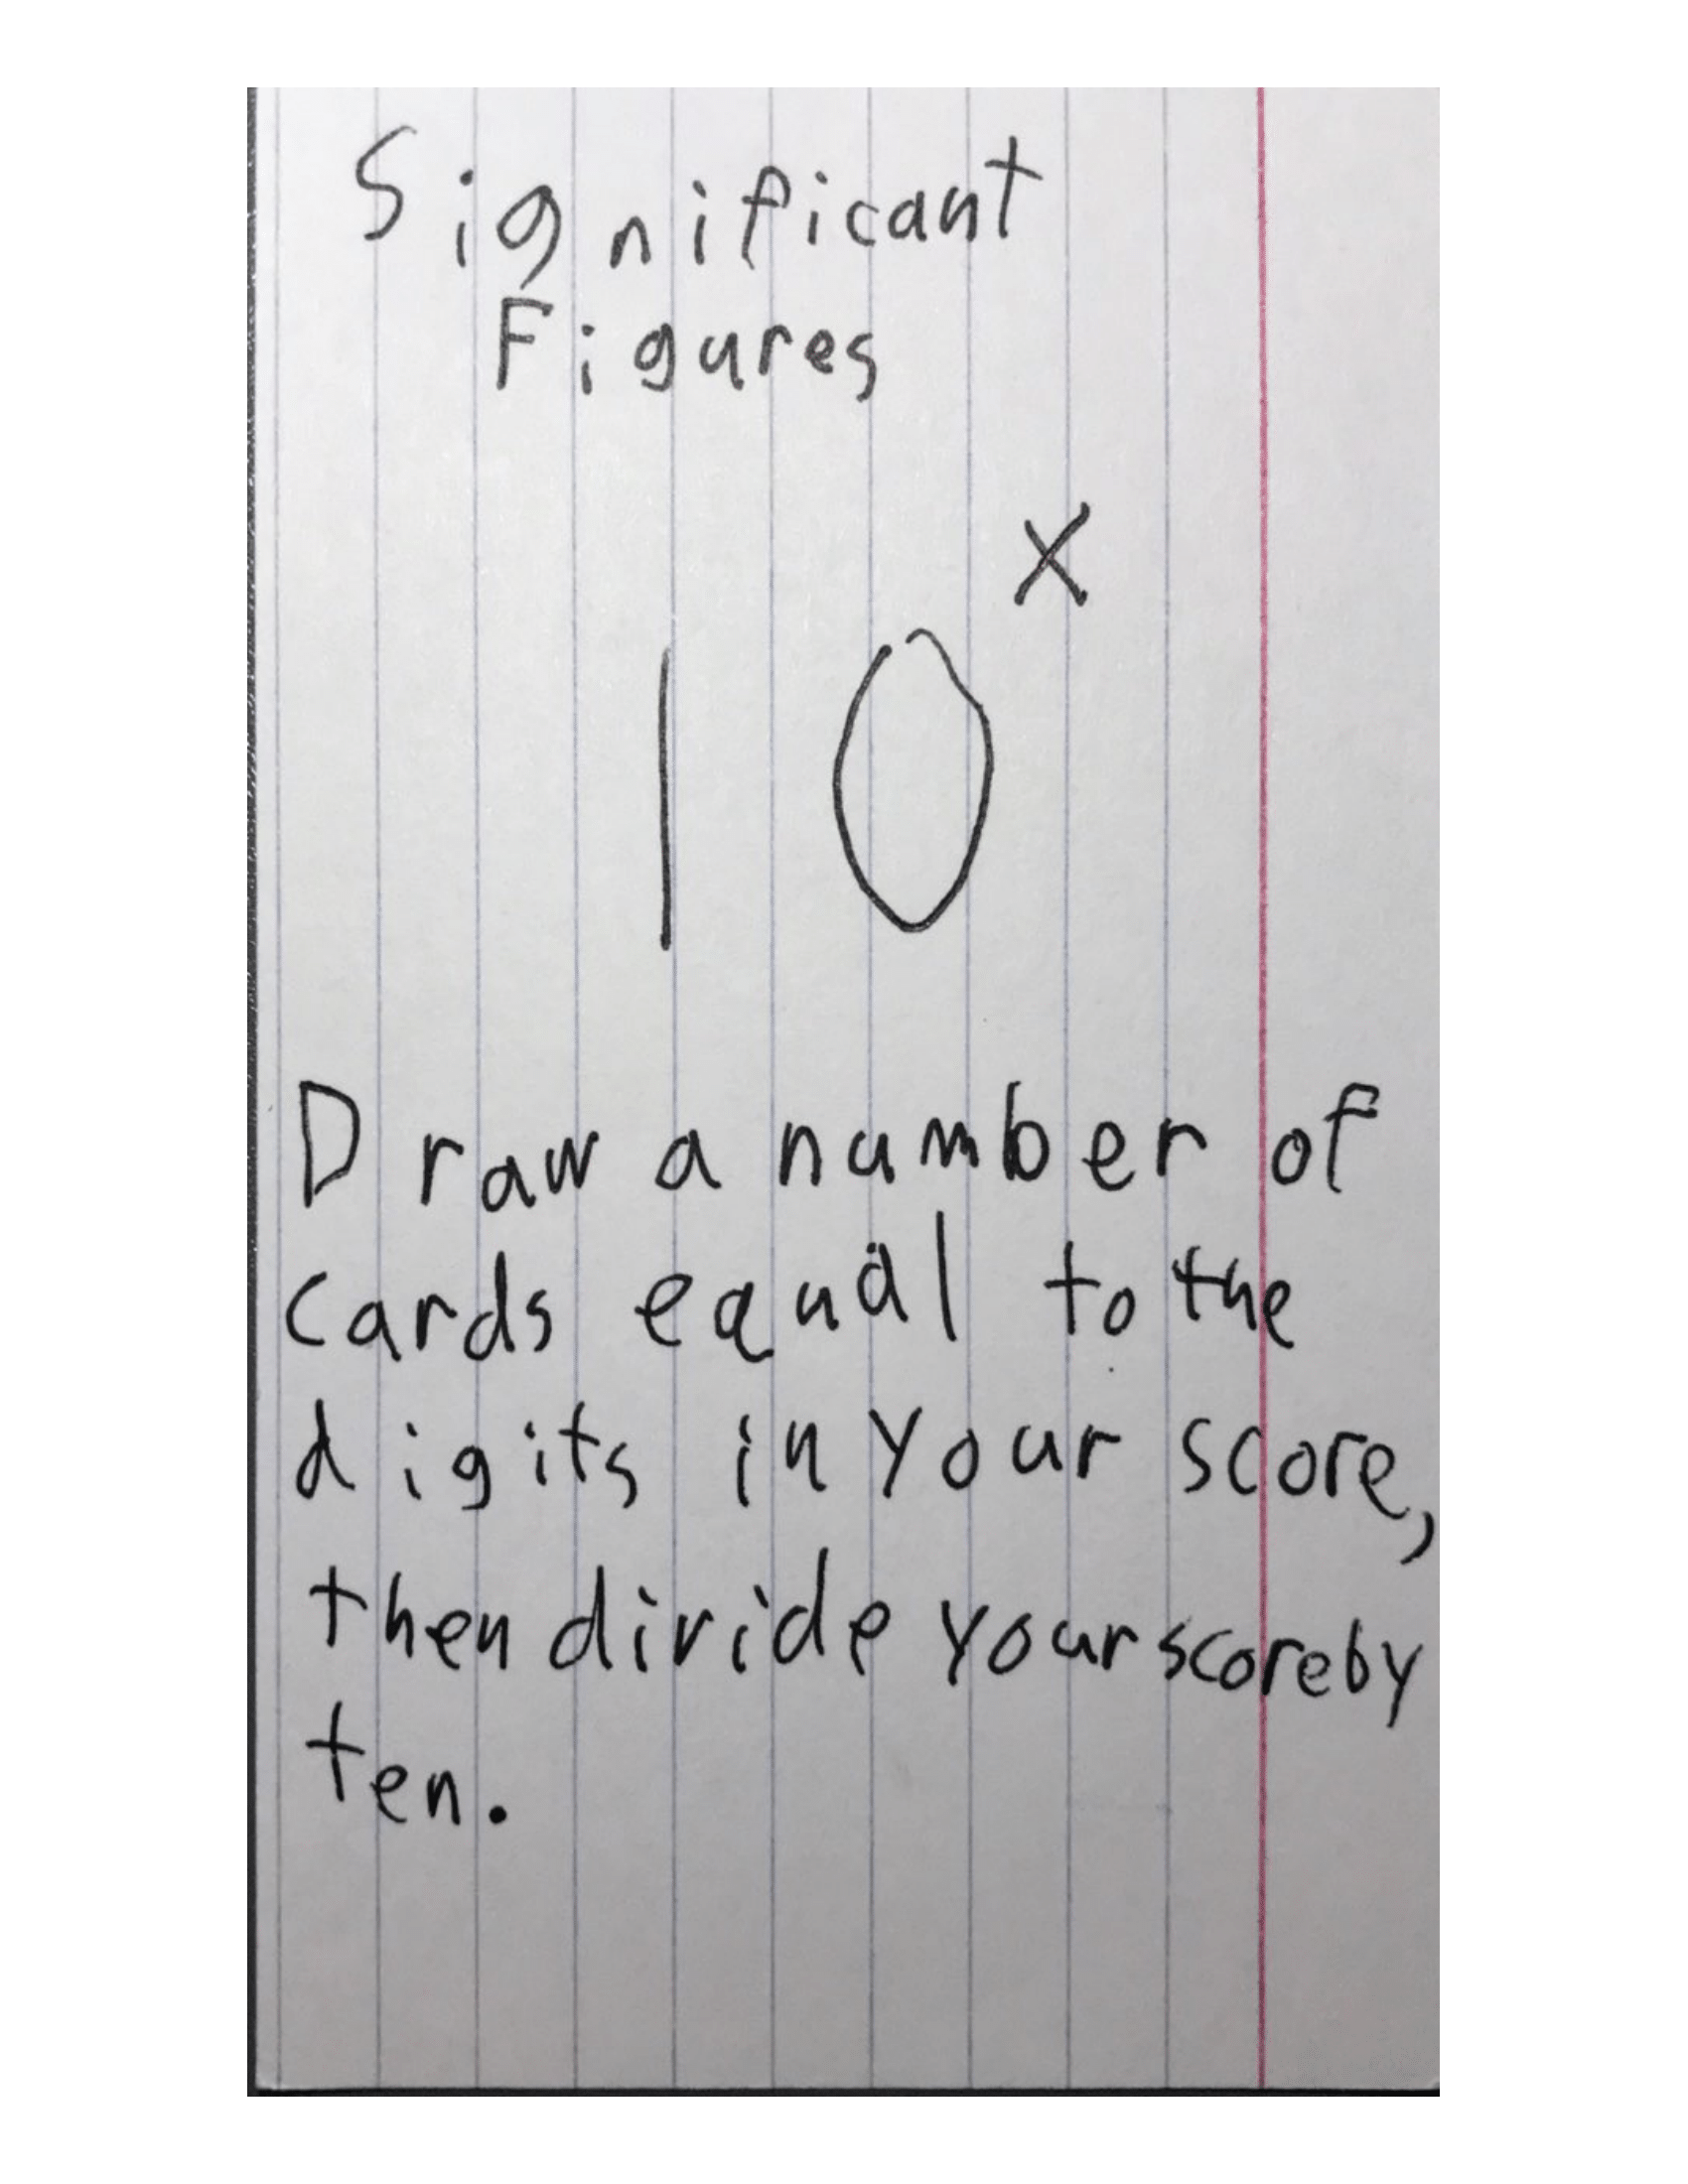 Significant
Figures
10ˣ
Draw a number of
cards equal to the
digits in your score,
then divide your score by
ten.